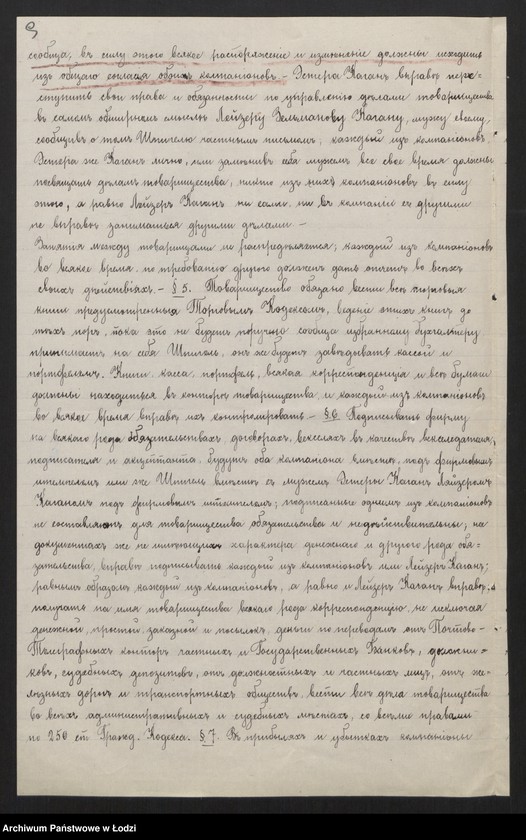 сообща, въ силу этого всякое распоряженіе и измѣненіе должны исходить
изъ общаго согласія обоихъ компаніоновъ. — Эстера Каганъ вправѣ пере-
ступить свои права и обязанности по управленію дѣлами товарищества
въ самомъ обширномъ смыслѣ Лейзеру Зельманову Кагану, мужу своему,
сообщивъ о томъ Шпигелю частнымъ письмомъ; каждый изъ компаніоновъ,
Эстера же Каганъ лично, или замѣнивъ себя мужемъ все свое время должны
посвящать дѣламъ товарищества, никто изъ нихъ компаніоновъ въ силу
этого, а равно Лейзеръ Каганъ ни сами, ни въ компаніи съ другими
не вправѣ заниматься другими дѣлами —
Занятія между товарищами не распредѣляются; каждый изъ компаніоновъ
во всякое время по требованію другого долженъ дать отчетъ во всѣхъ
своихъ дѣйствіяхъ. — § 5. Товарищество обязано вести всѣ торговыя
книги предусмотрѣнныя Торговымъ Кодексомъ, веденіе этихъ книгъ до
тѣхъ поръ, пока это не будетъ поручено сообща избранному бухгалтеру
принимаетъ на себя Шпигель, онъ же будетъ завѣдывать кассой и
портфелемъ. Книги, касса, портфель, всякая корреспонденція и всѣ бумаги
должны находиться въ конторѣ товарищества, и каждый изъ компаніоновъ
во всякое время вправѣ ихъ контролировать — § 6 Подписывать фирму
на всякаго рода обязательствахъ, договорахъ, векселяхъ въ качествѣ векселедателя,
надписателя и акцептанта будутъ оба компаніона вмѣстѣ, подъ фирмовымъ
штемпелемъ или же Шпигель вмѣстѣ съ мужемъ Эстеры Каганъ Лейзеромъ
Каганомъ подъ фирмовымъ штемпелемъ; подписанные однимъ изъ компаніоновъ
не составляютъ для товарищества обязательства и недѣйствительны; на
документахъ же не имѣющихъ характера денежнаго и другого рода обя-
зательства, вправѣ подписывать каждый изъ компаніоновъ или Лейзеръ Каганъ;
равнымъ образомъ каждый изъ компаніоновъ, а равно и Лейзеръ Каганъ вправѣ
получать на имя товарищества всякаго рода корреспонденцію, не исключая
денежной, простой, заказной и посылокъ, деньги по переводамъ отъ Почтово-
Телеграфныхъ конторъ частныхъ и Государственныхъ Банковъ, должни-
ковъ, судебныхъ депозитовъ, отъ должностныхъ и частныхъ лицъ, отъ же-
лѣзныхъ дорогъ и транспортныхъ обществъ, вести всѣ дѣла товарищества
во всѣхъ административныхъ и судебныхъ мѣстахъ, со всѣми правами
по 250 ст. Гражд. Кодекса. § 7. Въ прибыляхъ и убыткахъ компаніоны
Archiwum Państwowe w Łodzi